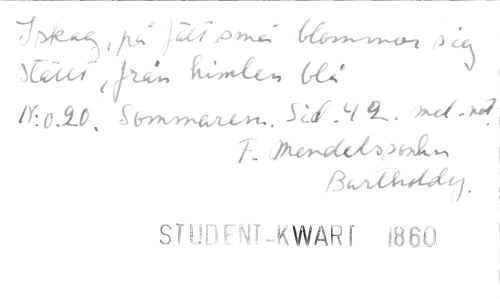 I skog, på fält små blommor sig
ställt, från himlen blå
N:o. 20. Sommaren. Sid. 42. mel.-not.
F. Mendelssohn
Bartholdy.
STUDENT-KWART 1860